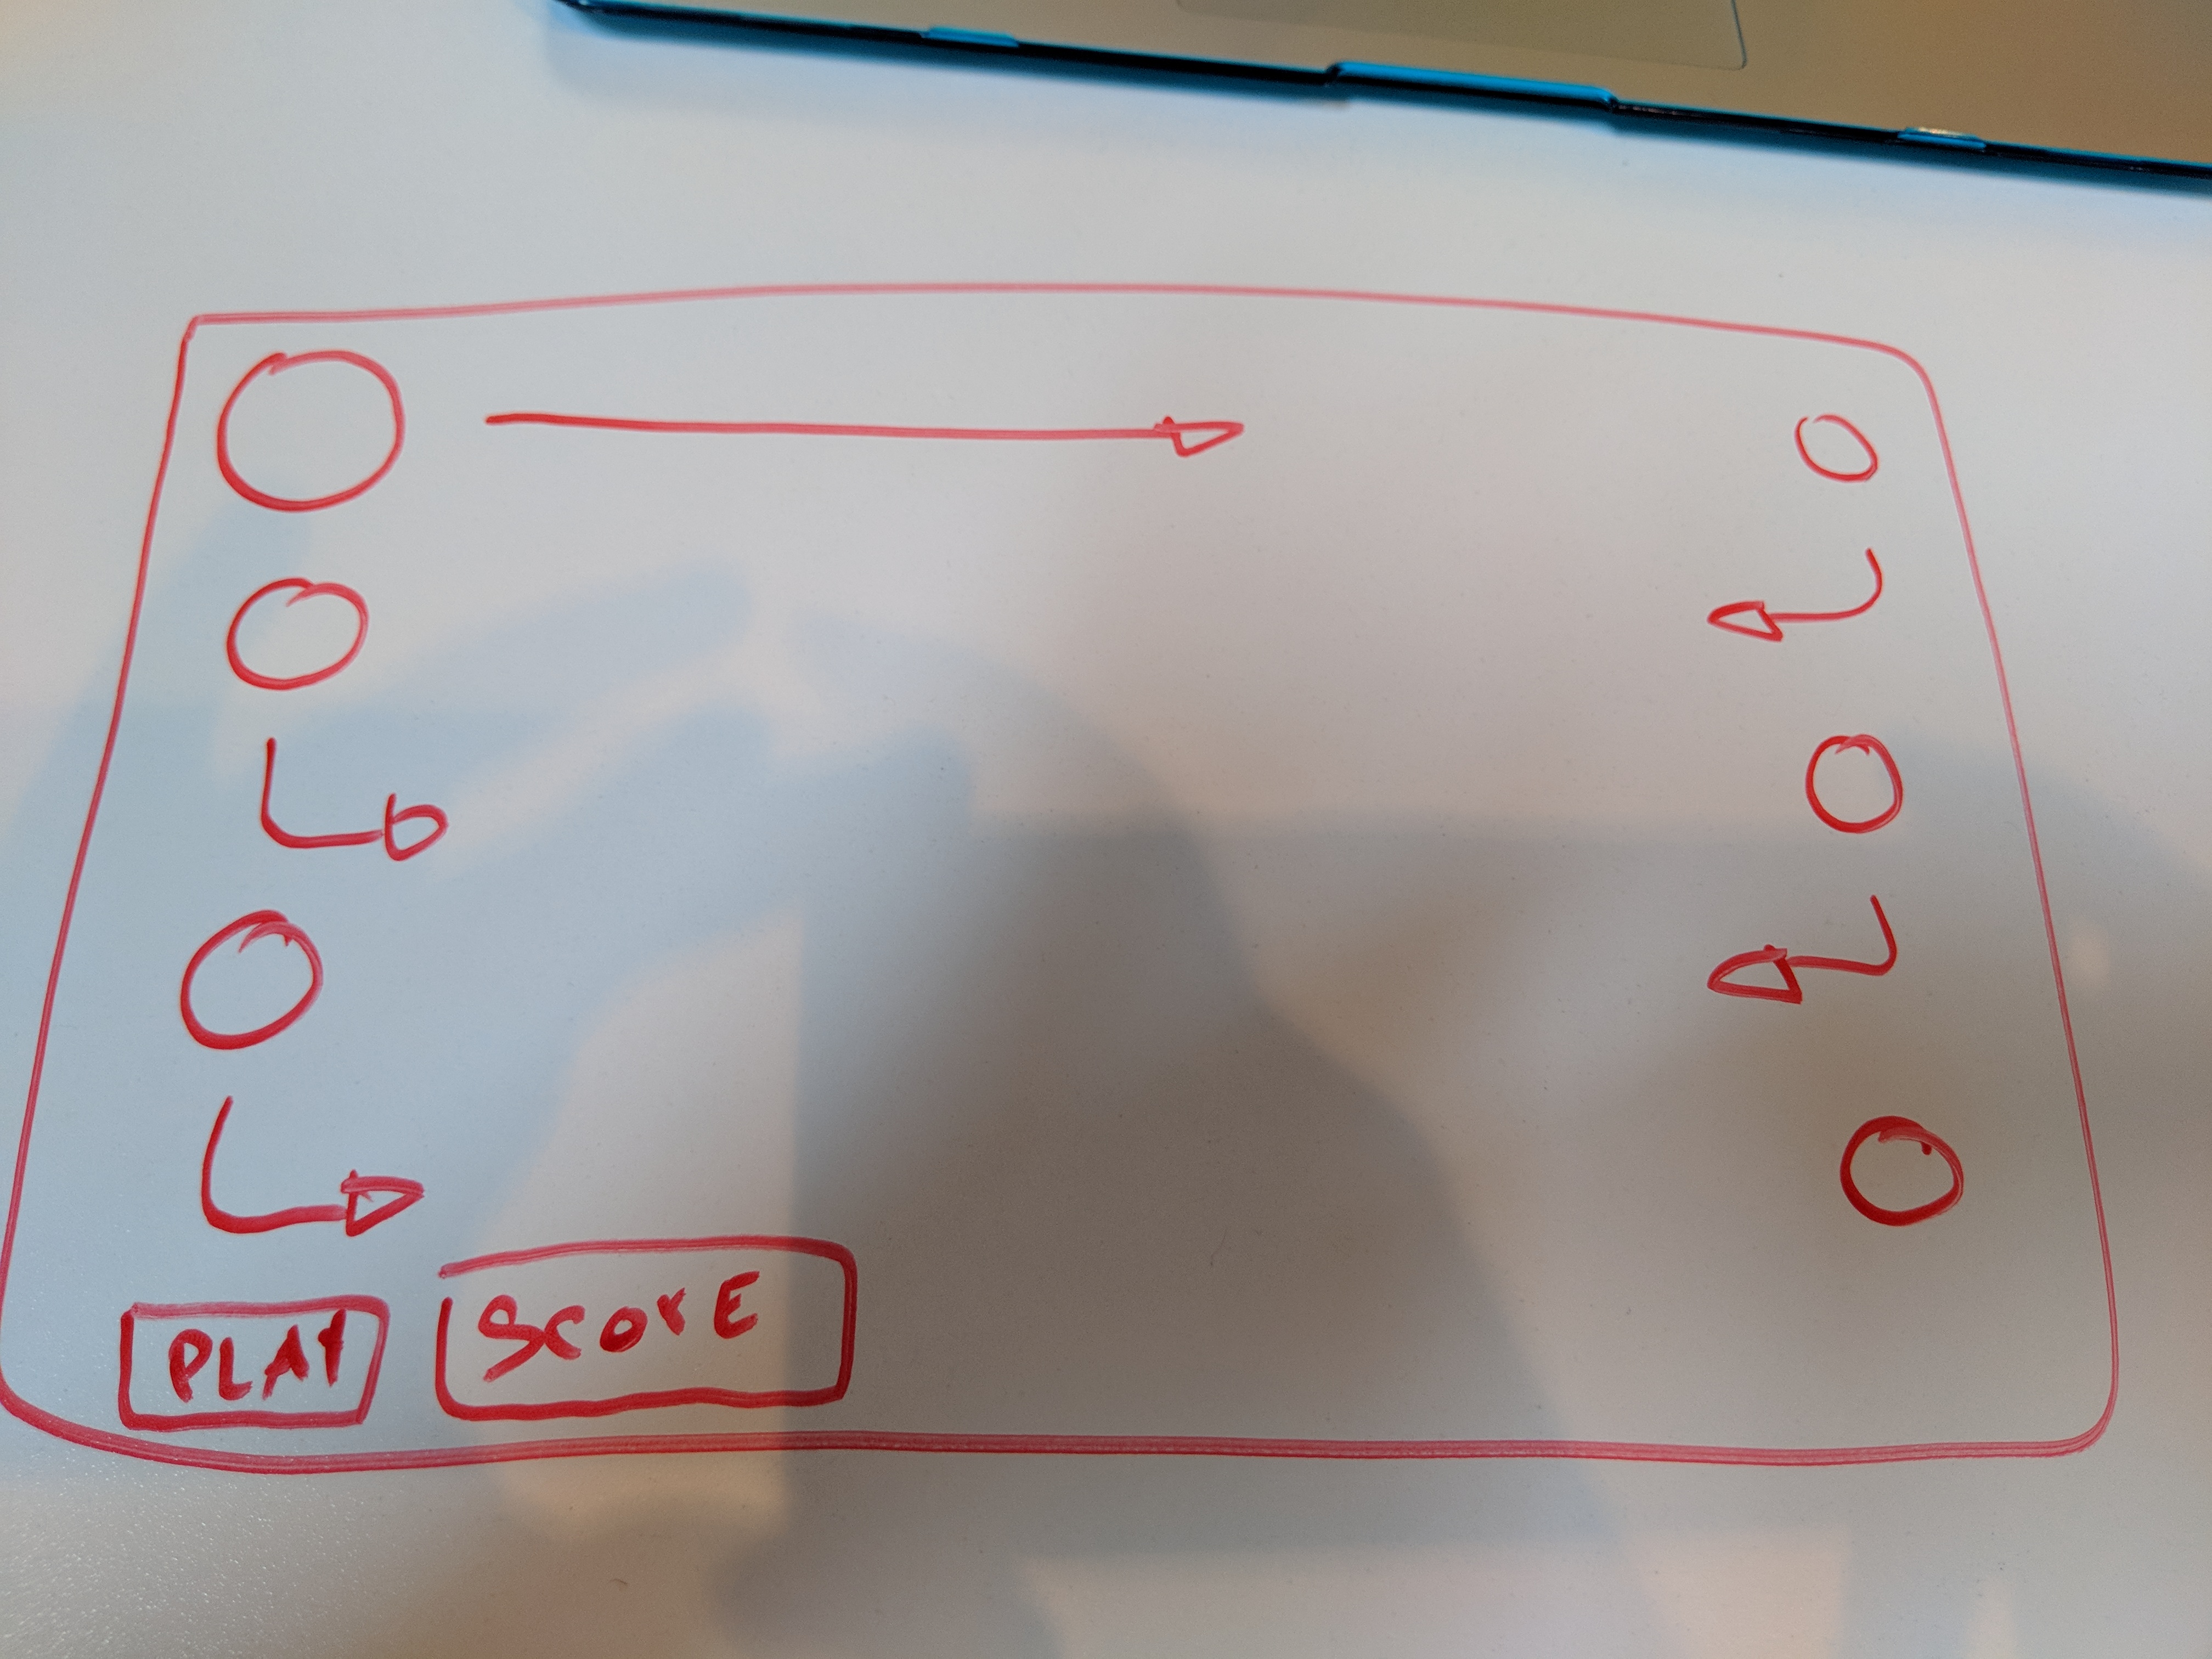 PLAY
SCORE